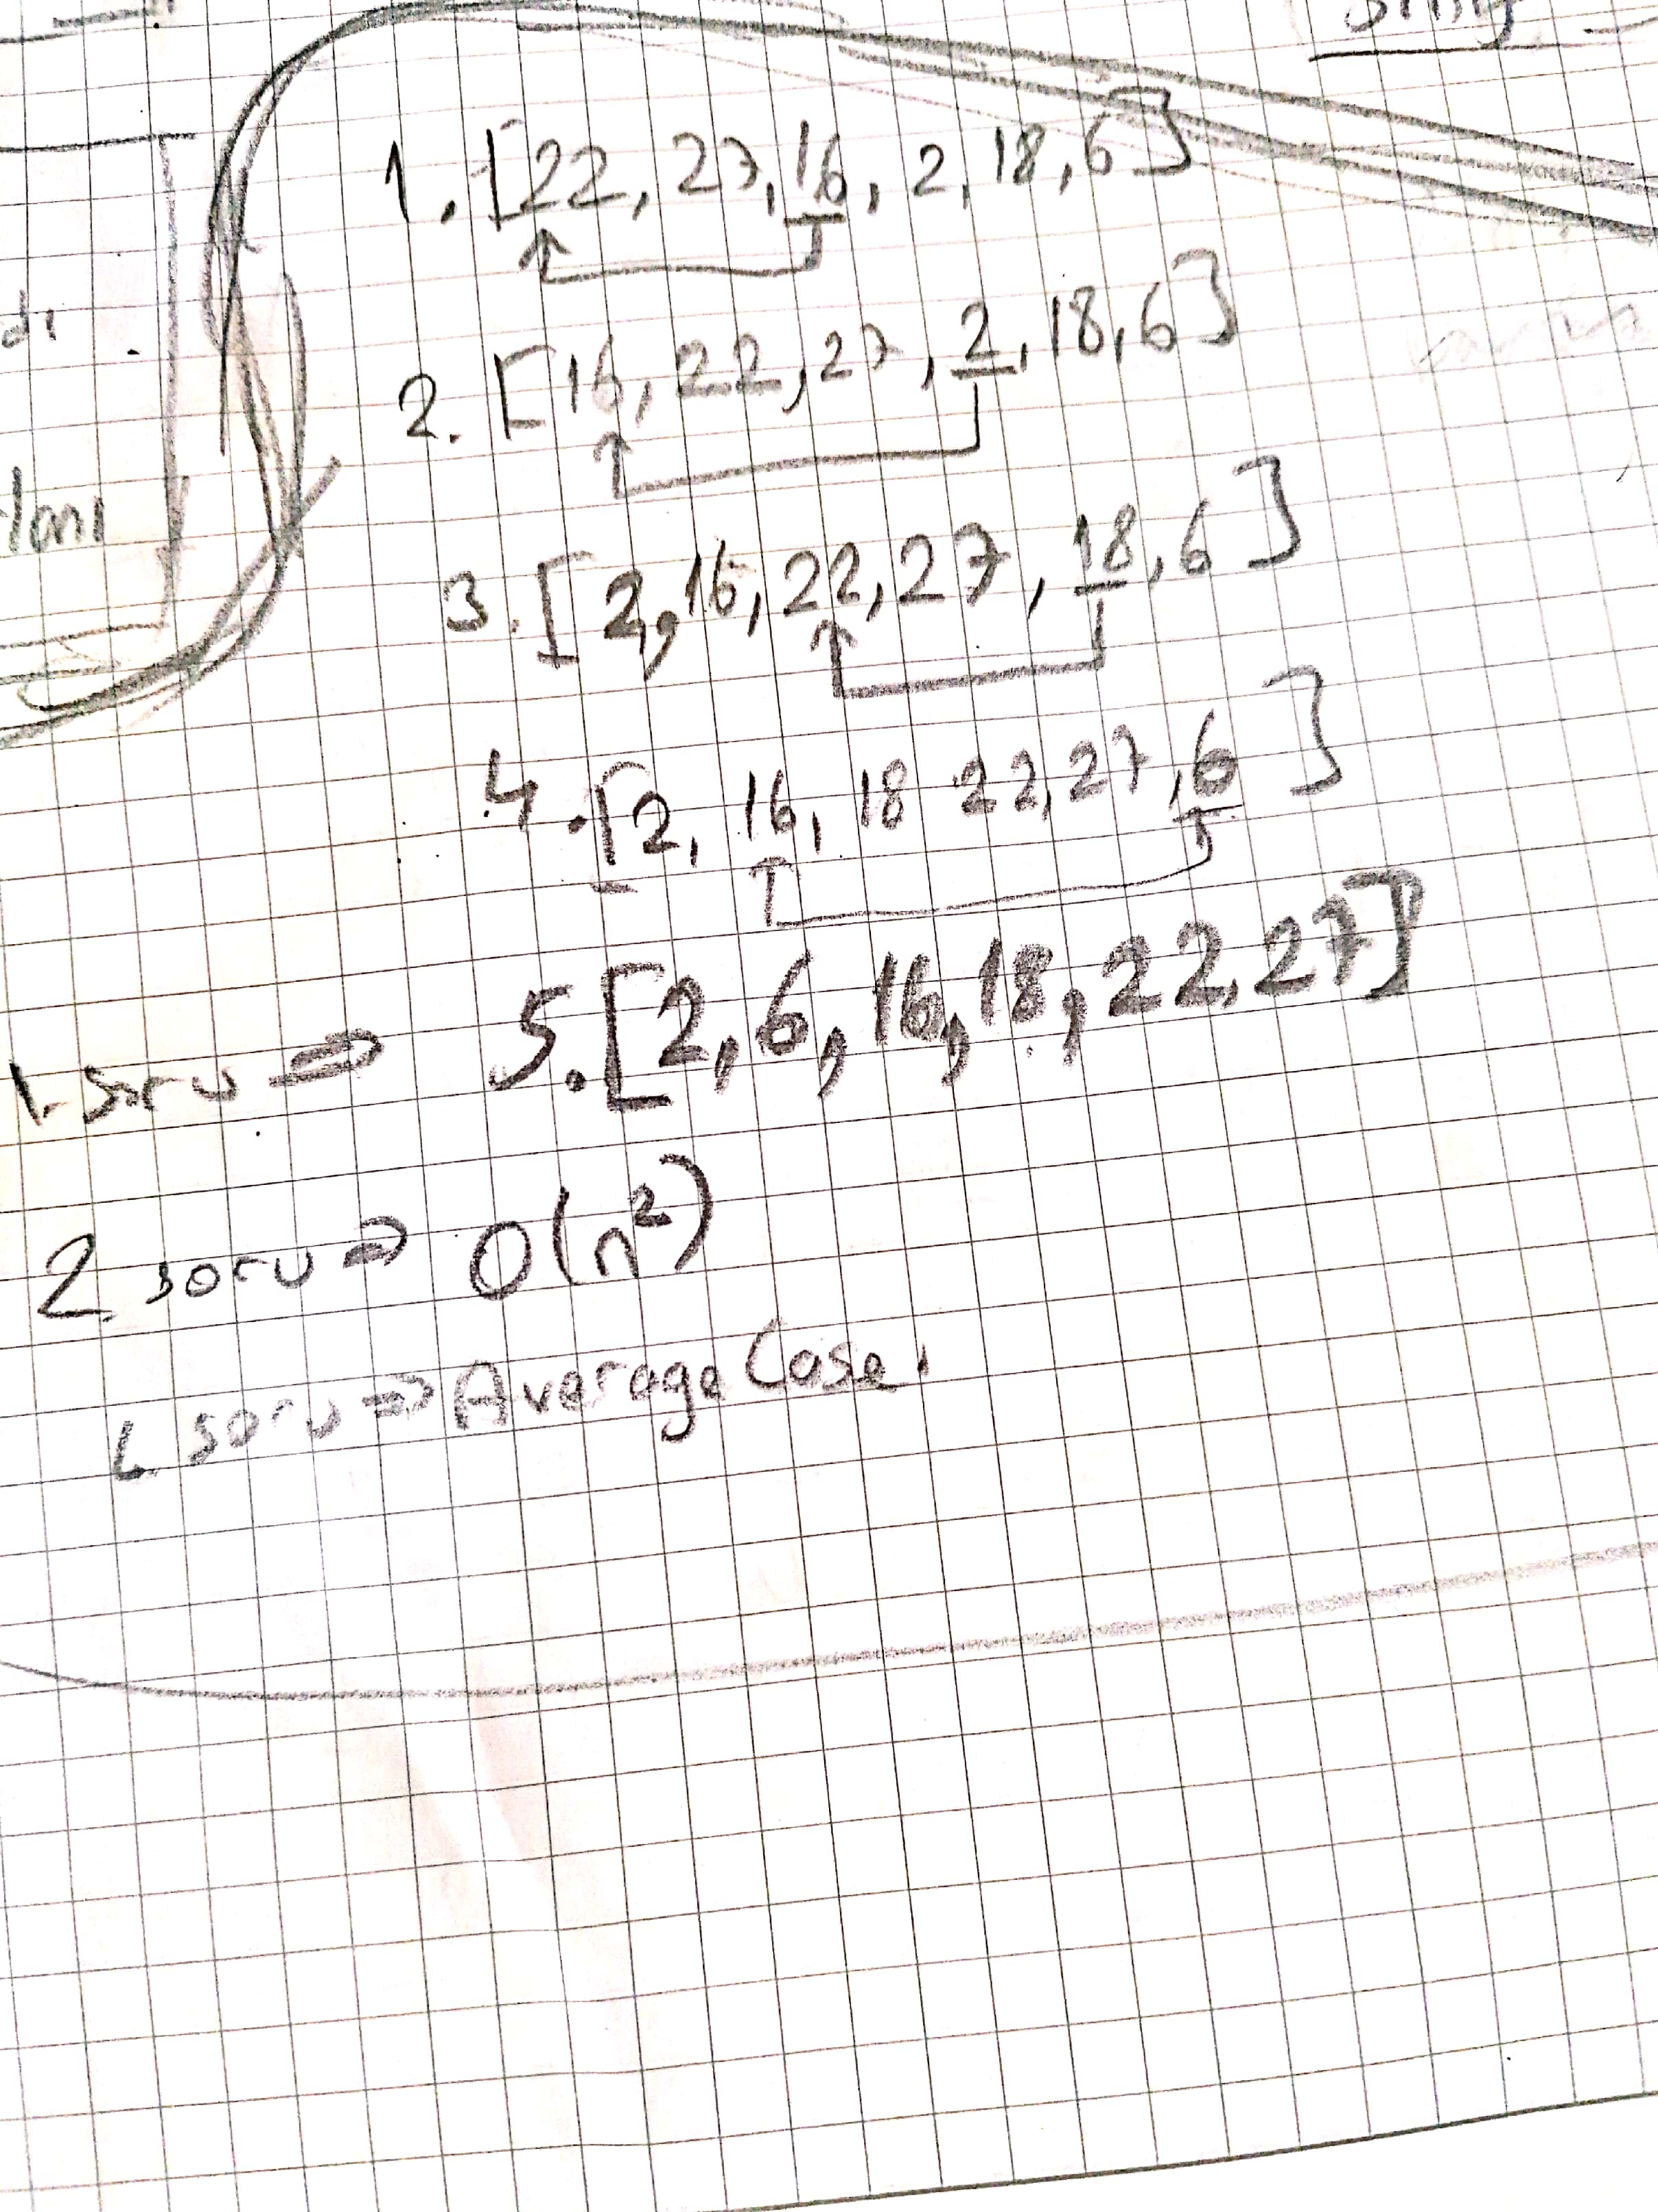 1. [22, 27, 16, 2, 18, 6]
2. [16, 22, 27, 2, 18, 6]
3. [2, 16, 22, 27, 18, 6]
4. [2, 16, 18 22, 27, 6]
1. soru ⇒ 5. [2, 6, 16, 18, 22, 27]
2 soru ⇒ O(n²)
soru ⇒ Average Case.